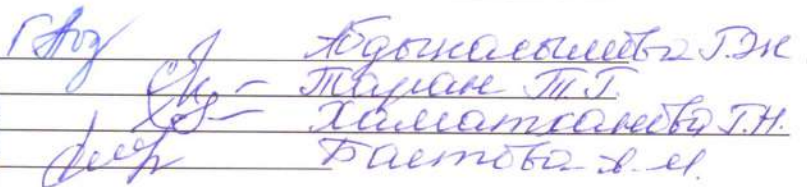 Абдыкалыкова Г.Ж.
Таран Т.Г.
Хаматханова Г.Н.
Баетова А.М.